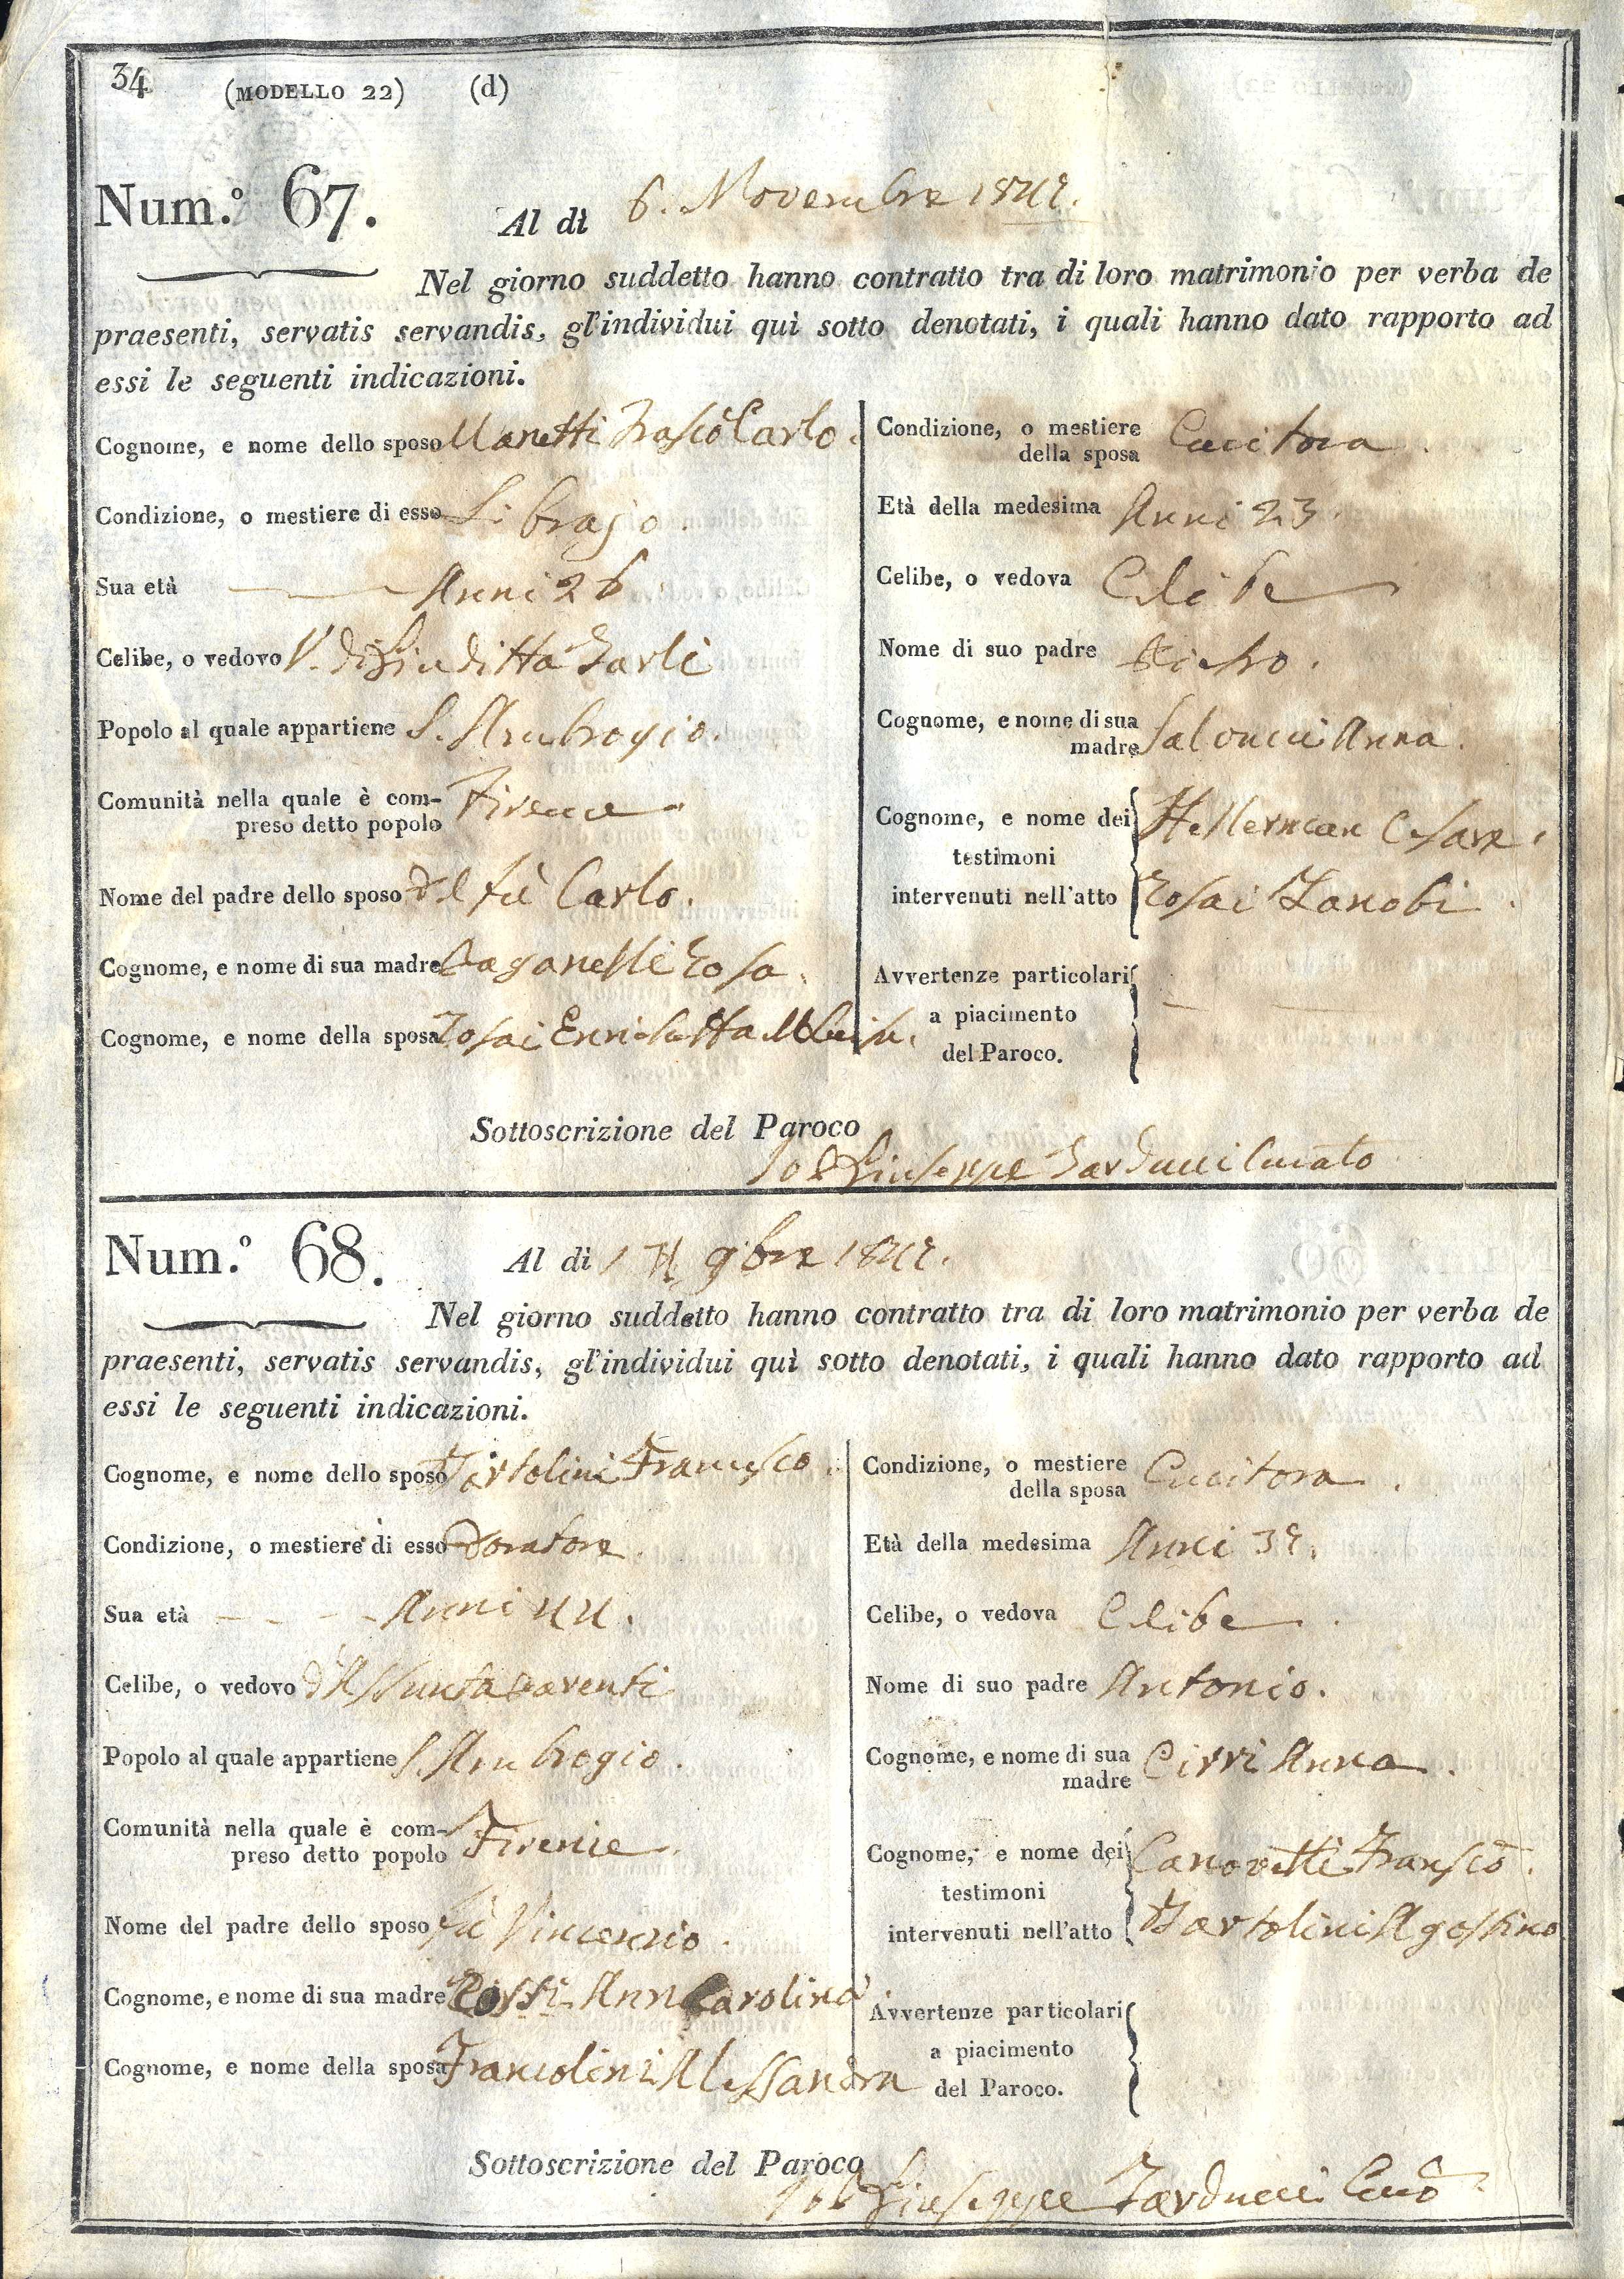 34
(MODELLO 22) (d)
Num.º 67.
Al dì 6. Novembre 1842.
Nel giorno suddetto hanno contratto tra di loro matrimonio per verba de
praesenti, servatis servandis, gl'individui quì sotto denotati, i quali hanno dato rapporto ad
essi le seguenti indicazioni.
Cognome, e nome dello sposo Manetti Frascõ Carlo.
Condizione, o mestiere di esso Librajo.
Sua età Anni 26
Celibe, o vedovo V. di Giuditta
Popolo al quale appartiene S. Ambrogio.
Comunità nella quale è com-
preso detto popolo Firenze
Nome del padre dello sposo del fù Carlo.
Cognome, e nome di sua madre Paganelli Rosa.
Cognome, e nome della sposa Rosai Enrichetta
Condizione, o mestiere
della sposa Cucitora
Età della medesima Anni 23.
Celibe, o vedova Celibe
Nome di suo padre
Cognome, e nome di sua
madre Salvucci Anna.
Cognome, e nome dei Hellerman Cesare.
testimoni
intervenuti nell'atto Rosai Zanobi.
Avvertenze particolari
a piacimento
del Paroco.
Sottoscrizione del Paroco
Io P. Giuseppe Tarducci Curato
Num.º 68.
Al dì 14 9bre 1842.
Nel giorno suddetto hanno contratto tra di loro matrimonio per verba de
praesenti, servatis servandis, gl'individui quì sotto denotati, i quali hanno dato rapporto ad
essi le seguenti indicazioni.
Cognome, e nome dello sposo Bartolini Francesco.
Condizione, o mestiere di esso Doratore
Sua età Anni 44.
Celibe, o vedovo d'Assunta
Popolo al quale appartiene S. Ambrogio.
Comunità nella quale è com-
preso detto popolo Firenze.
Nome del padre dello sposo fù Vincenzio.
Cognome, e nome di sua madre Rossi Anna Carolina
Cognome, e nome della sposa Francolini Alessandra
Condizione, o mestiere
della sposa Cucitora.
Età della medesima Anni 32.
Celibe, o vedova Celibe.
Nome di suo padre Antonio.
Cognome, e nome di sua
madre Cirri Anna.
Cognome, e nome dei Canovetti Franscõ.
testimoni
intervenuti nell'atto Bartolini Agostino
Avvertenze particolari
a piacimento
del Paroco.
Sottoscrizione del Paroco
Io P. Giuseppe Tarducci Curõ